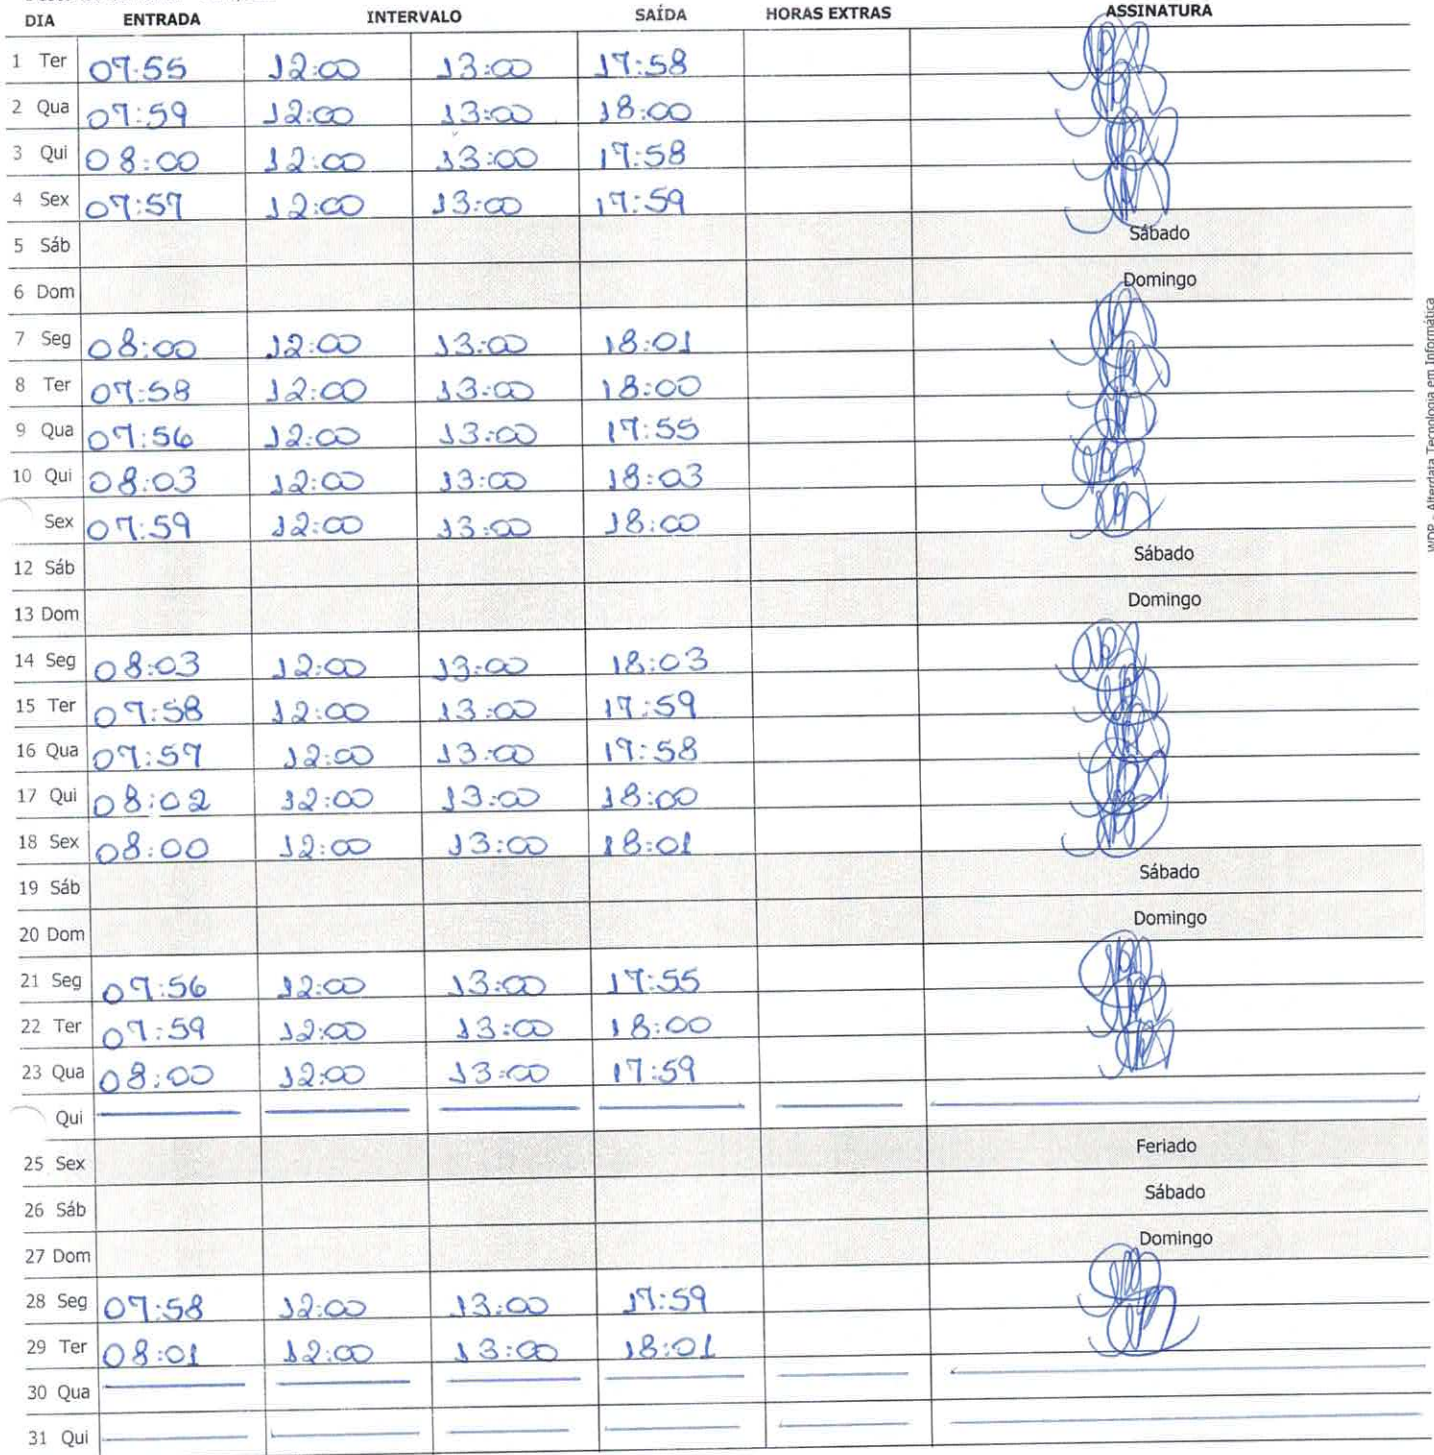 DIA ENTRADA INTERVALO SAÍDA HORAS EXTRAS ASSINATURA
1 Ter 07:55 12:00 13:00 17:58
2 Qua 07:59 12:00 13:00 18:00
3 Qui 08:00 12:00 13:00 17:58
4 Sex 07:57 12:00 13:00 17:59
5 Sáb Sábado
6 Dom Domingo
7 Seg 08:00 12:00 13:00 18:01
8 Ter 07:58 12:00 13:00 18:00
9 Qua 07:56 12:00 13:00 17:55
10 Qui 08:03 12:00 13:00 18:03
Sex 07:59 12:00 13:00 18:00
12 Sáb Sábado
13 Dom Domingo
14 Seg 08:03 12:00 13:00 18:03
15 Ter 07:58 12:00 13:00 17:59
16 Qua 07:57 12:00 13:00 17:58
17 Qui 08:02 12:00 13:00 18:00
18 Sex 08:00 12:00 13:00 18:01
19 Sáb Sábado
20 Dom Domingo
21 Seg 07:56 12:00 13:00 17:55
22 Ter 07:59 12:00 13:00 18:00
23 Qua 08:00 12:00 13:00 17:59
Qui
25 Sex Feriado
26 Sáb Sábado
27 Dom Domingo
28 Seg 07:58 12:00 13:00 17:59
29 Ter 08:01 12:00 13:00 18:01
30 Qua
31 Qui
WDP - Alterdata Tecnologia em Informática